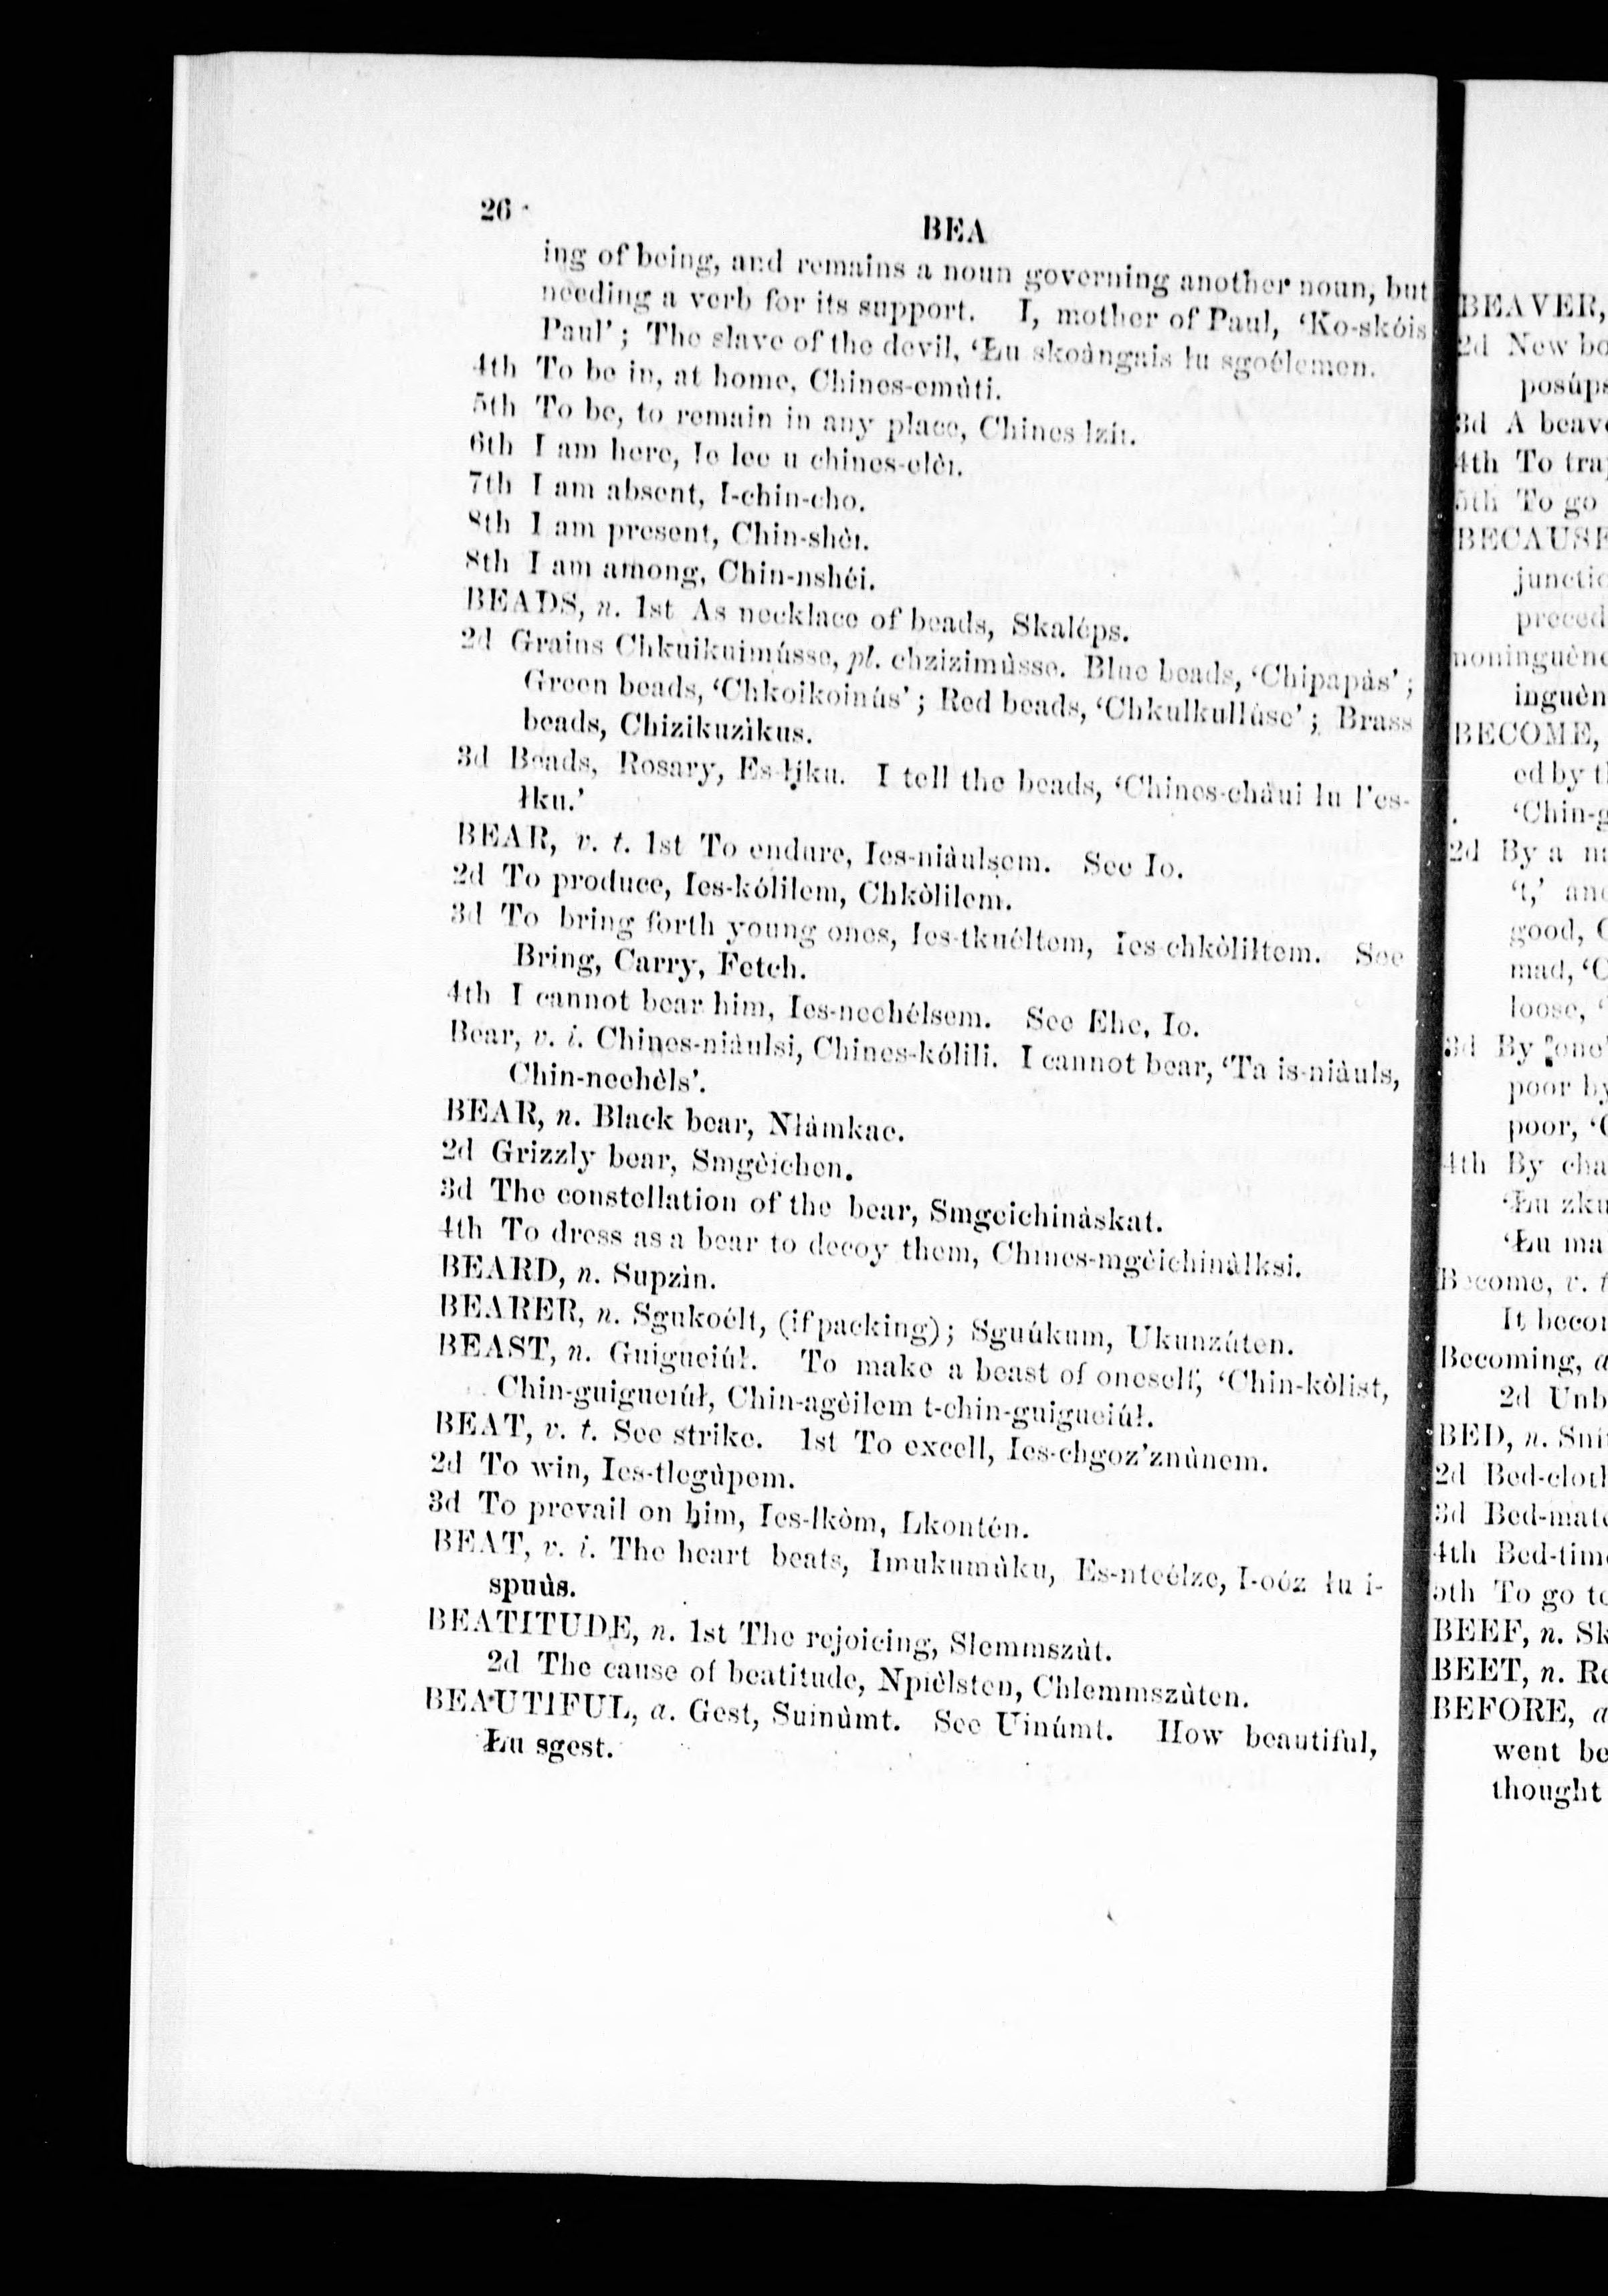 26
BEA
ing of being, and remains a noun governing another noun, but
needing a verb for its support. I, mother of Paul, ‘Ko-skóis
Paul’; The slave of the devil, ‘Łu skoàngais łu sgoélemen.
4th To be in, at home, Chines-emùti.
5th To be, to remain in any place, Chines lzíi.
6th I am here, Ie lee u chines-elèi.
7th I am absent, I-chin-cho.
8th I am present, Chin-shèi.
8th I am among, Chin-nshéi.
BEADS, n. 1st As necklace of beads, Skaléps.
2d Grains Chkuikuimússe, pl. chzizimùsse. Blue beads, ‘Chipapàs’;
Green beads, ‘Chkoikoinús’; Red beads, ‘Chkulkullùse’; Brass
beads, Chizikuzìkus.
3d Beads, Rosary, Es-łìku. I tell the beads, ‘Chines-chàui łu l’es-
łku.’
BEAR, v. t. 1st To endure, Ies-niàulsem. See Io.
2d To produce, Ies-kólilem, Chkòlilem.
3d To bring forth young ones, Ies-tkuéltem, Ies-chkòliłtem. See
Bring, Carry, Fetch.
4th I cannot bear him, Ies-nechélsem. See Ehe, Io.
Bear, v. i. Chines-niàulsi, Chines-kólili. I cannot bear, ‘Ta is-niàuls,
Chin-nechèls’.
BEAR, n. Black bear, Nłàmkae.
2d Grizzly bear, Smgèichen.
3d The constellation of the bear, Smgeichinàskat.
4th To dress as a bear to decoy them, Chines-mgèichinàlksi.
BEARD, n. Supzìn.
BEARER, n. Sgukoélt, (if packing); Sguúkum, Ukunzúten.
BEAST, n. Guigueiúł. To make a beast of oneself, ‘Chin-kòlist,
Chin-guigueiúł, Chin-agèilem t-chin-guigueiúł.
BEAT, v. t. See strike. 1st To excell, Ies-chgoz’znùnem.
2d To win, Ies-tlegùpem.
3d To prevail on him, Ies-lkòm, Lkontén.
BEAT, v. i. The heart beats, Imukumùku, Es-nteélze, I-oóz łu i-
spuùs.
BEATITUDE, n. 1st The rejoicing, Slemmszùt.
2d The cause of beatitude, Npièlsten, Chlemmszùten.
BEAUTIFUL, a. Gest, Suinùmt. See Uinúmt. How beautiful,
Łu sgest.
BEAVER,
2d New
posúps
3d A
4th To
5th To go
BECAUSE
noninguène
inguèn
BECOME,
ed by
‘Chin-g
2d By a
‘t,’
good,
mad,
loose,
3d By
poor by
poor,
4th By
‘Łu
‘Łu
Become, v. t
It
Becoming, a
2d
BED, n.
2d
3d
4th
5th To go
BEEF, n.
BEET, n.
BEFORE, a
went
thought